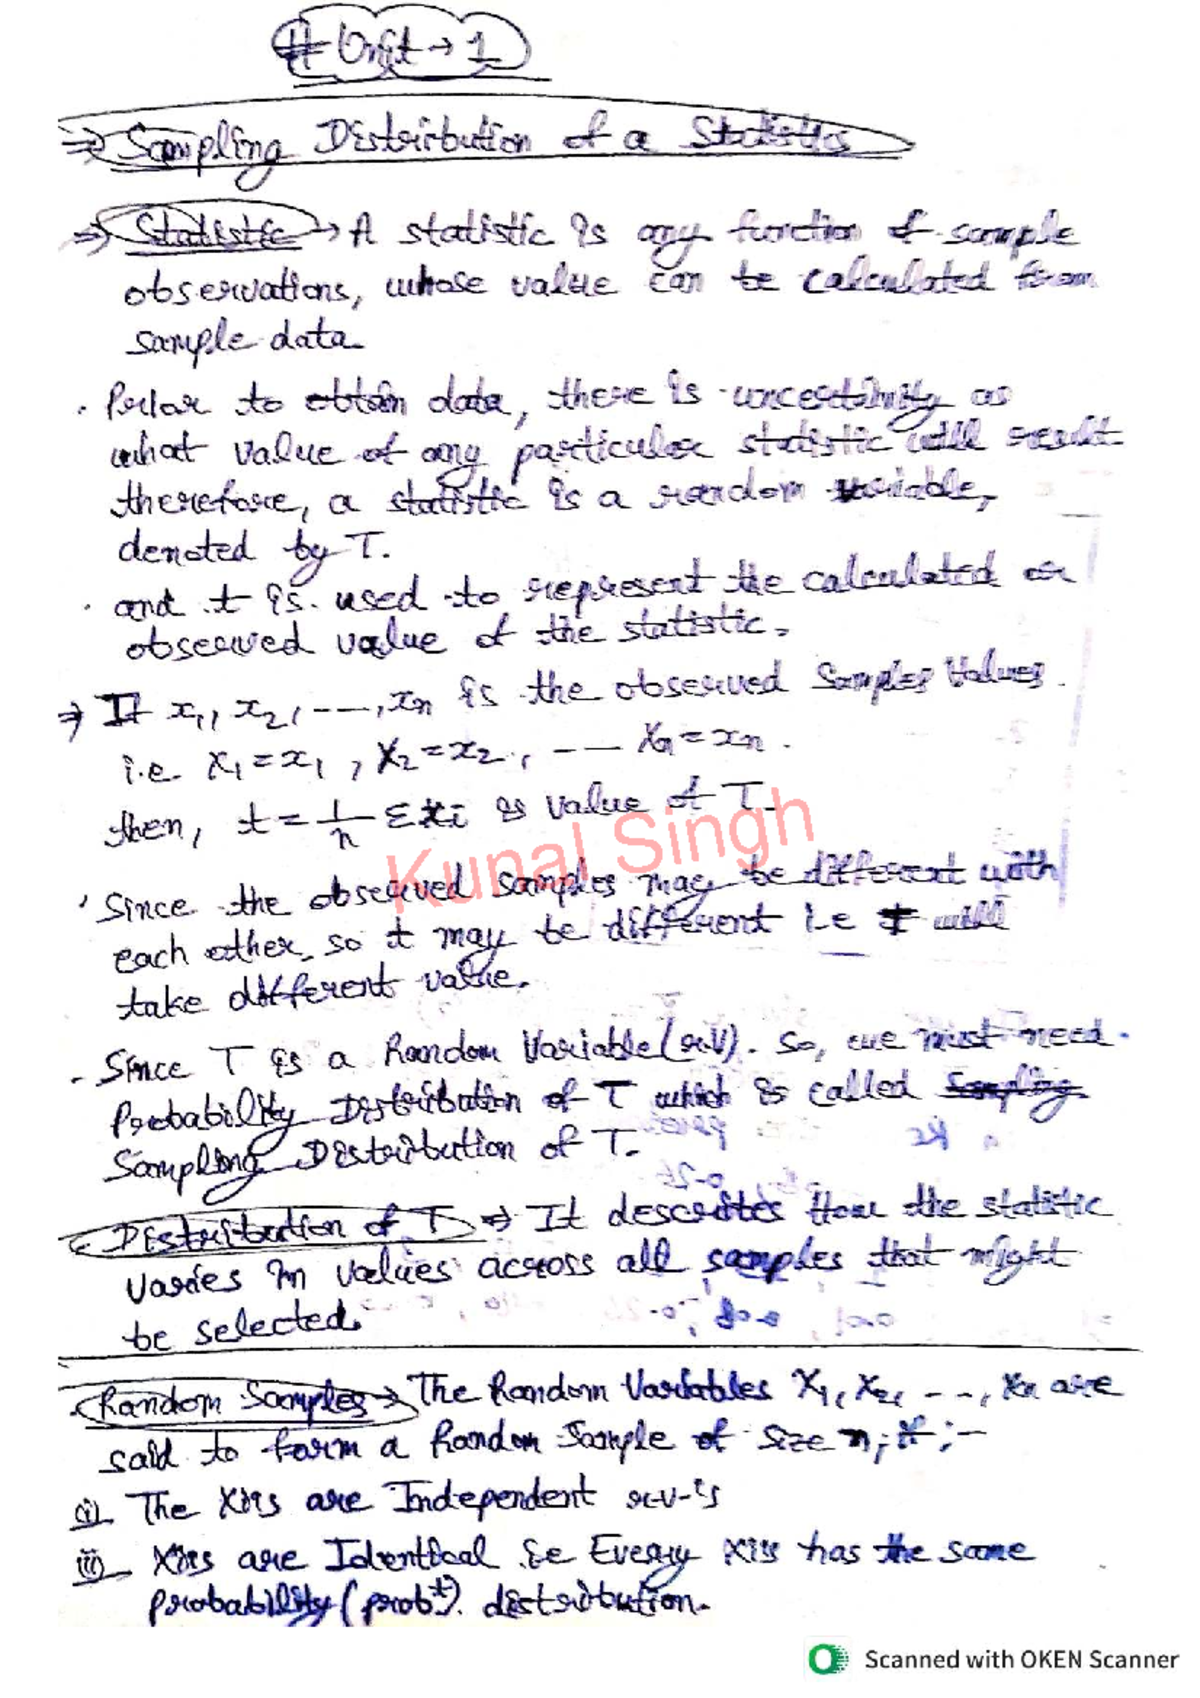 # Unit → 1
⇒ Sampling Distribution of a Statistic
⇒ Statistic → A statistic is any function of sample
observations, whose value can be calculated from
sample data
• Prior to obtain data, there is uncertainity as
what value of any particular statistic will result
therefore, a statistic is a random variable,
denoted by T.
• and t is used to represent the calculated or
observed value of the statistic.
⇒ If x₁, x₂, ---, xn is the observed Samples Values.
i.e. X₁ = x₁, X₂ = x₂, --- Xn = xn.
then, t = 1/n Σxi is value of T.
Kunal Singh
• Since the observed samples may be different with
each other, so t may be different i.e T will
take different value.
- Since T is a Random Variable (r.v). So, we must need
Probability Distribution of T which is called
Sampling Distribution of T.
Distribution of T ⇒ It describes How the statistic
varies in values across all samples that might
be selected.
Random Samples → The Random Variables X₁, X₂, ---, Xn are
said to form a Random Sample of size n, if :-
(i) The Xi's are Independent r.v.'s
(ii) Xi's are Identical i.e Every Xi's has the same
probability (prob^t). distribution.
Scanned with OKEN Scanner